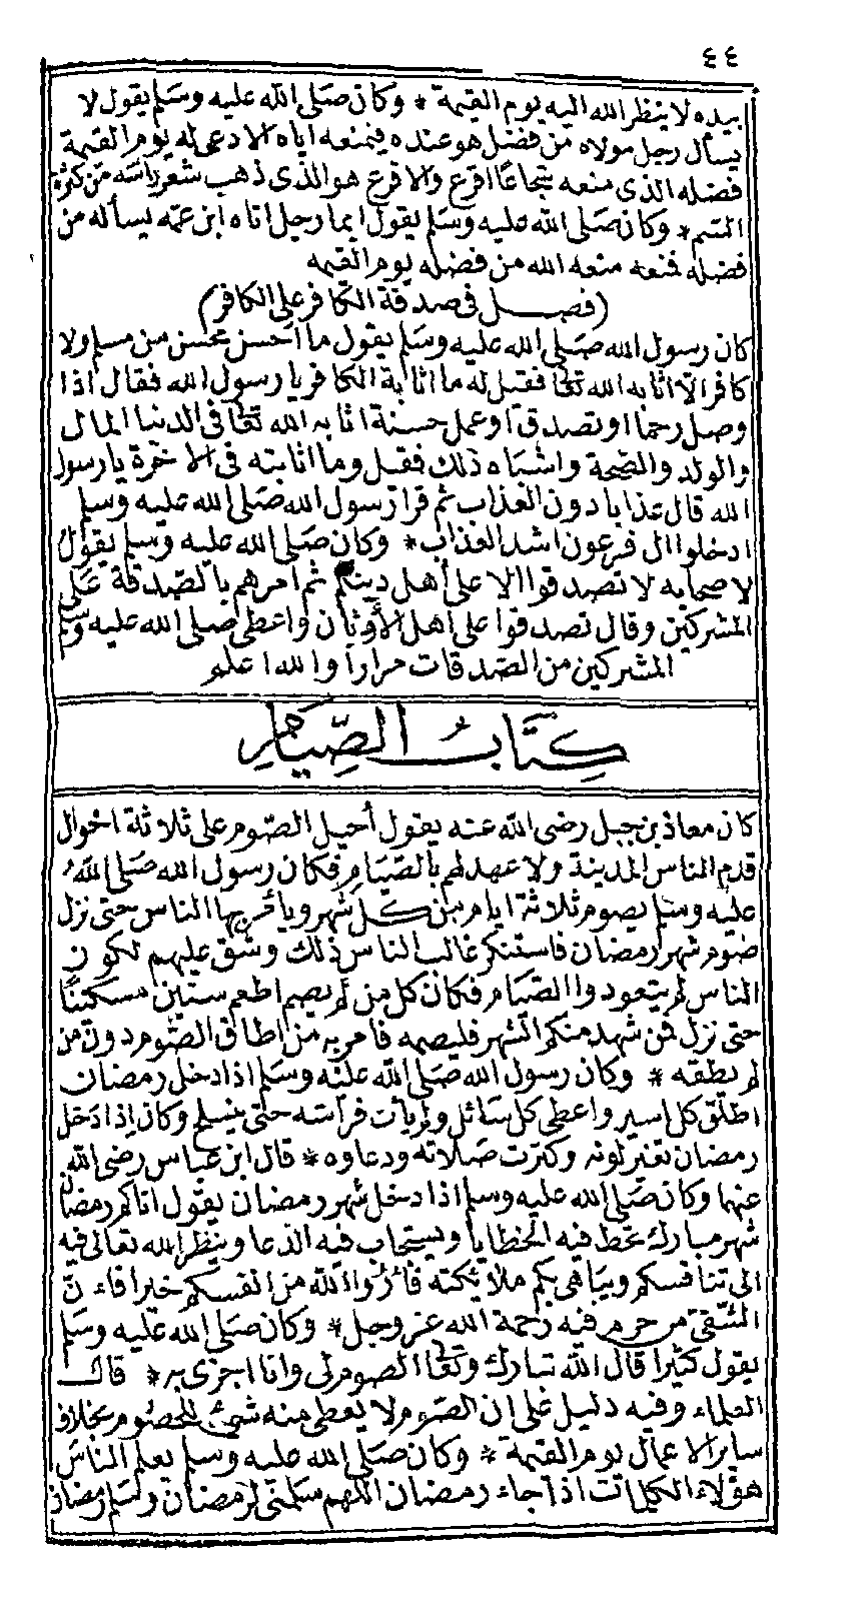 ٤٤
بيده لا ينظر الله اليه يوم القيمة * وكان صلى الله عليه وسلم يقول لا
يسأل رجل مولاه من فضل هو عنده فيمنعه اياه الا دعى له يوم القيمة
فضله الذى منعه شجاعا اقرع والاقرع هو الذى ذهب شعر راسه من كثرة
السم * وكان صلى الله عليه وسلم يقول ايما رجل اتاه ابن عمه يسأله من
فضله فمنعه منعه الله من فضله يوم القيمه
(فصل فى صدقة الكافر على الكافر)
كان رسول الله صلى الله عليه وسلم يقول ما احسن محسن من مسلم ولا
كافر الا اثابه الله تعالى فقيل له ما اثابة الكافر يا رسول الله فقال اذا
وصل رحما او تصدق او عمل حسنة اثابه الله تعالى فى الدنيا المال
والولد والصحة واشباه ذلك فقيل وما اثابته فى الاخرة يا رسول
الله قال عذابا دون العذاب ثم قرا رسول الله صلى الله عليه وسلم
ادخلوا ال فرعون اشد العذاب * وكان صلى الله عليه وسلم يقول
لاصحابه لا تصدقوا الا على أهل دينكم ثم امرهم بالصدقة على
المشركين وقال تصدقوا على اهل الأوثان واعطى صلى الله عليه وسلم
المشركين من الصدقات مرارا والله اعلم
كتاب الصيام
كان معاذ بن جبل رضى الله عنه يقول أحيل الصوم على ثلاثة احوال
قدم الناس المدينة ولا عهد لهم بالصيام فكان رسول الله صلى الله
عليه وسلم يصوم ثلاثة ايام من كل شهر ويأمر بها الناس حتى نزل
صوم شهر رمضان فاستنكر غالب الناس ذلك وشق عليهم لكون
الناس لم يتعودوا الصيام فكان كل من لم يصم اطعم ستين مسكينا
حتى نزل فمن شهد منكم الشهر فليصمه فامر به من اطاق الصوم دون من
لم يطقه * وكان رسول الله صلى الله عليه وسلم اذا دخل رمضان
اطلق كل اسير واعطى كل سائل ولم يأت فراشه حتى ينسلخ وكان إذا دخل
رمضان تغير لونه وكثرت صلاته ودعاوه * قال ابن عباس رضى الله
عنهما وكان صلى الله عليه وسلم اذا دخل شهر رمضان يقول اتاكم رمضان
شهر مبارك تحط فيه الخطايا ويستجاب فيه الدعا وينظر الله تعالى فيه
الى تنافسكم ويباهى بكم ملائكته فأروا الله من انفسكم خيرا فان
الشقى من حرم فيه رحمة الله عز وجل * وكان صلى الله عليه وسلم
يقول كثيرا قال الله تبارك وتعالى الصوم لى وانا اجزى به * قال
العلماء وفيه دليل على ان الصوم لا يعطى منه شئ للخصوم بخلاف
ساير الاعمال يوم القيمة * وكان صلى الله عليه وسلم يعلم الناس
هؤلاء الكلمات اذا جاء رمضان اللهم سلمنى لرمضان وسلم رمضان